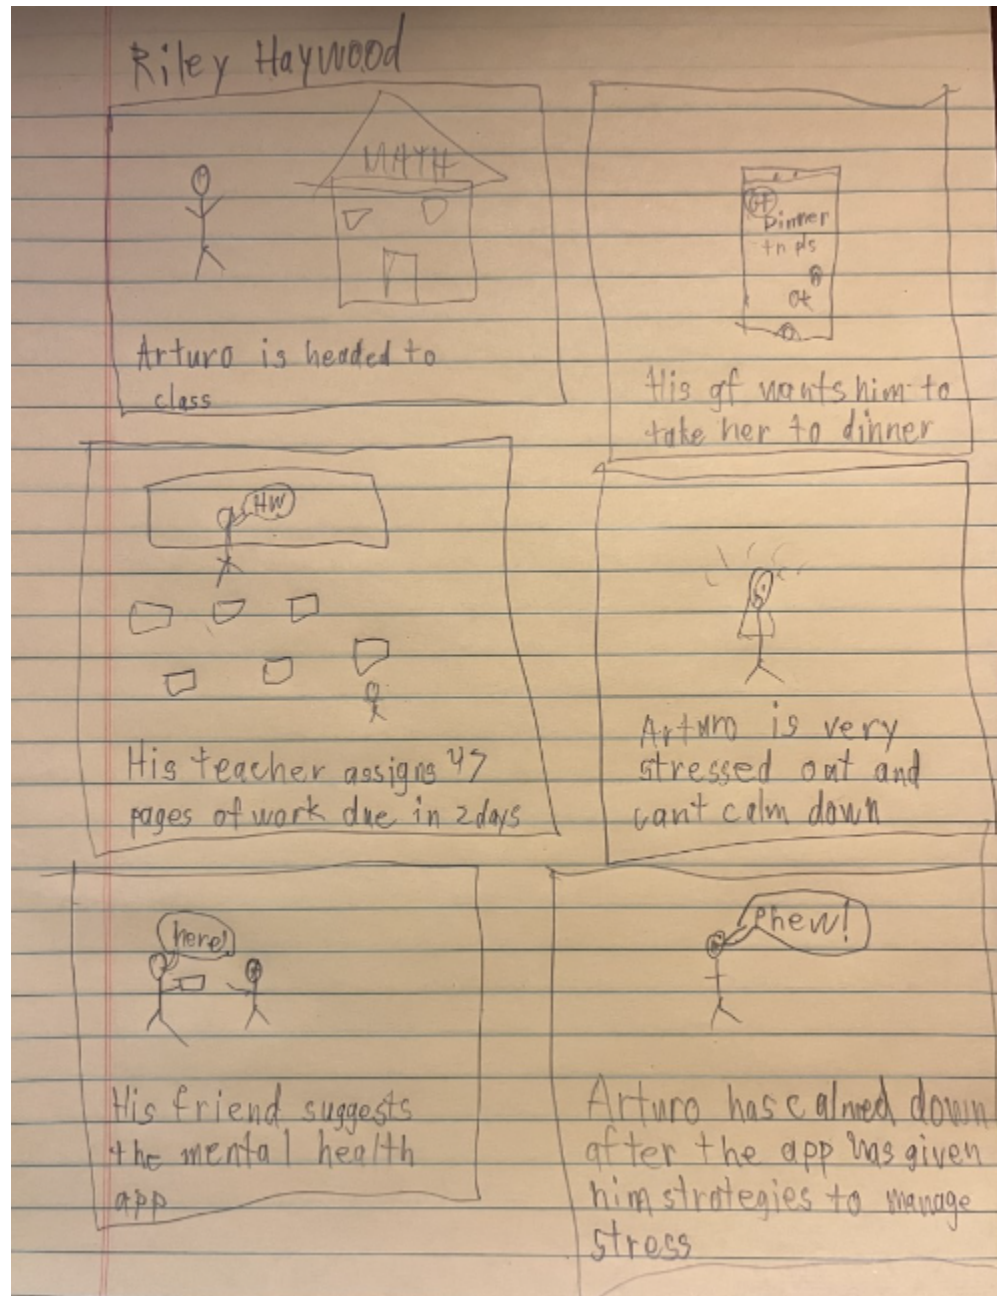 Riley Haywood
MATH
Arturo is headed to
class
GF
Dinner
tn pls
ok
His gf wants him to
take her to dinner
HW
His teacher assigns 47
pages of work due in 2 days
Arturo is very
stressed out and
cant calm down
here!
His friend suggests
the mental health
app
Phew!
Arturo has calmed down
after the app has given
him strategies to manage
stress